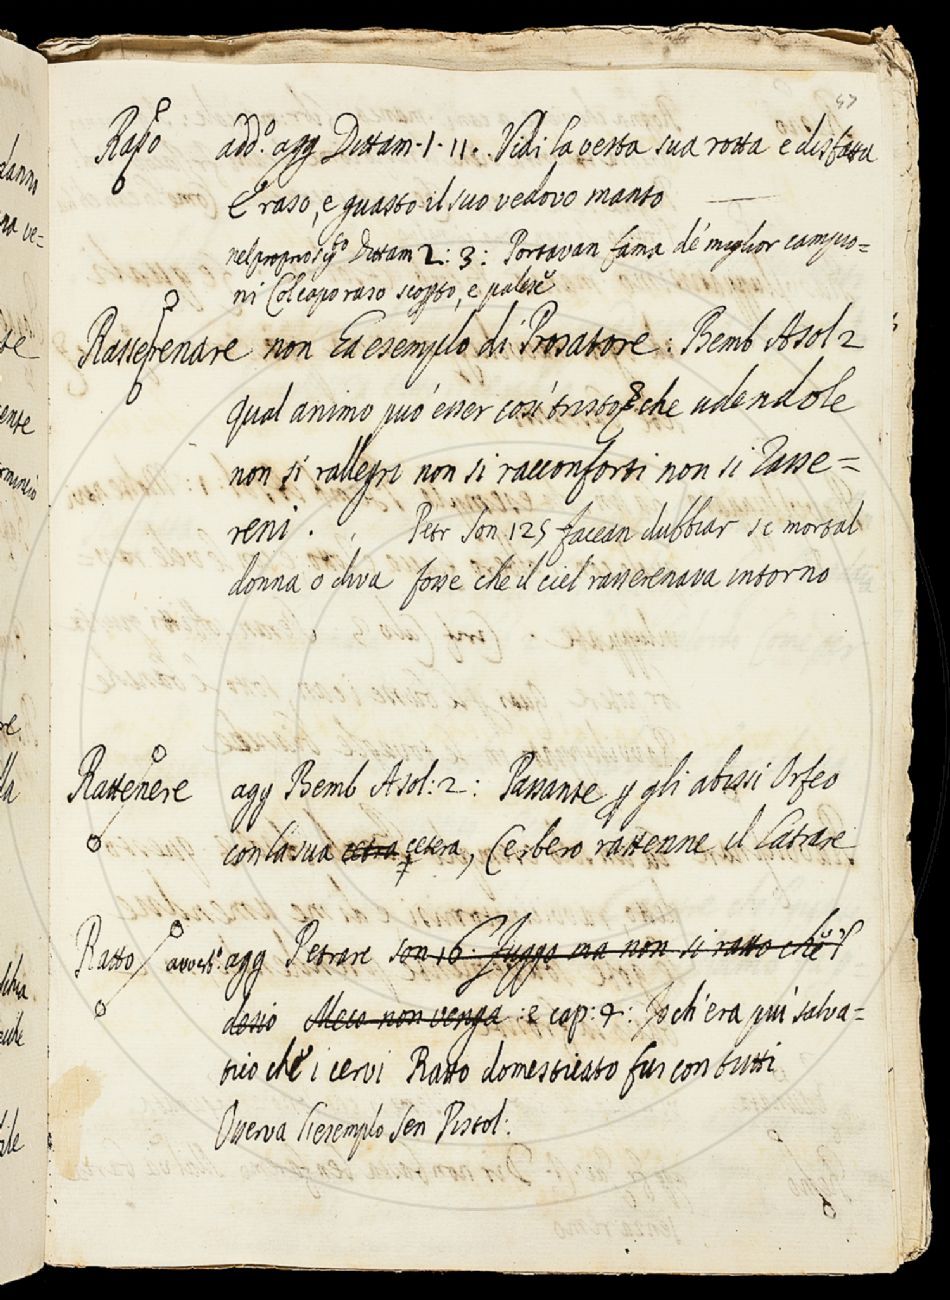 57
Raso add.o agg Dittam. 1. 11. Vidi la vesta sua rotta e disfatta
E' raso, e guasto il suo vedovo manto
nel proprio sig.o Dittam 2: 3: Portavan fama de' miglior campio=
ni Col capo raso
Rasserenare non ha esempio di Prosatore: Bemb Asol 2
Qual animo può esser così tristo che udendole
non si rallegri non si racconforti non si rasse=
reni. Petr Son 125 facean dubbiar se mortal
donna o diva fosse che il ciel rasserenava intorno
Rattenere agg Bemb Asol: 2: Passante p gli abissi Orfeo
con la sua cetra cetera, Cerbero rattenne il latrare
Ratto avverb.o agg Petrarc Son 16 Fuggo ma non si ratto che 'l
desio Meco non venga: e cap: 4: Io ch'era più salva=
tico che i cervi Ratto domesticato fui con tutti
Osserva l'esempio Sen Pistol: